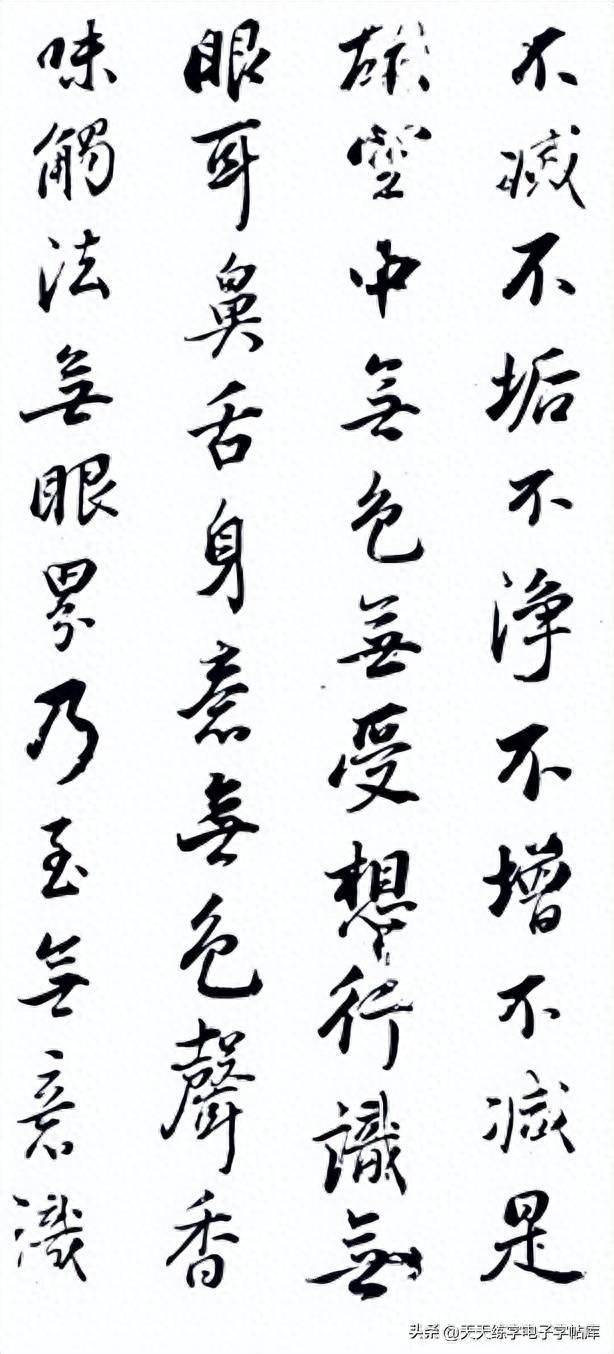 不滅不垢不淨不增不減是
故空中無色無受想行識無
眼耳鼻舌身意無色聲香
味觸法無眼界乃至無意識
头条 @天天练字电子字帖库